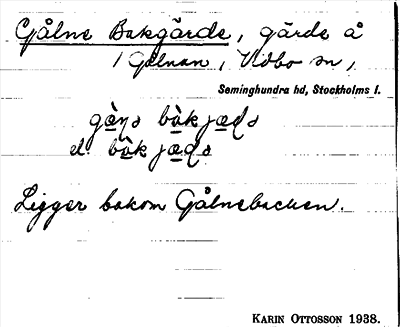 Gålne Bakgärde, gärde å
/ Gålnan, Vidbo sn,
Seminghundra hd, Stockholms l.
bàkjæḍs
el. bàkjæḍs
Ligger bakom Gålnebacken.
KARIN OTTOSSON 1938.